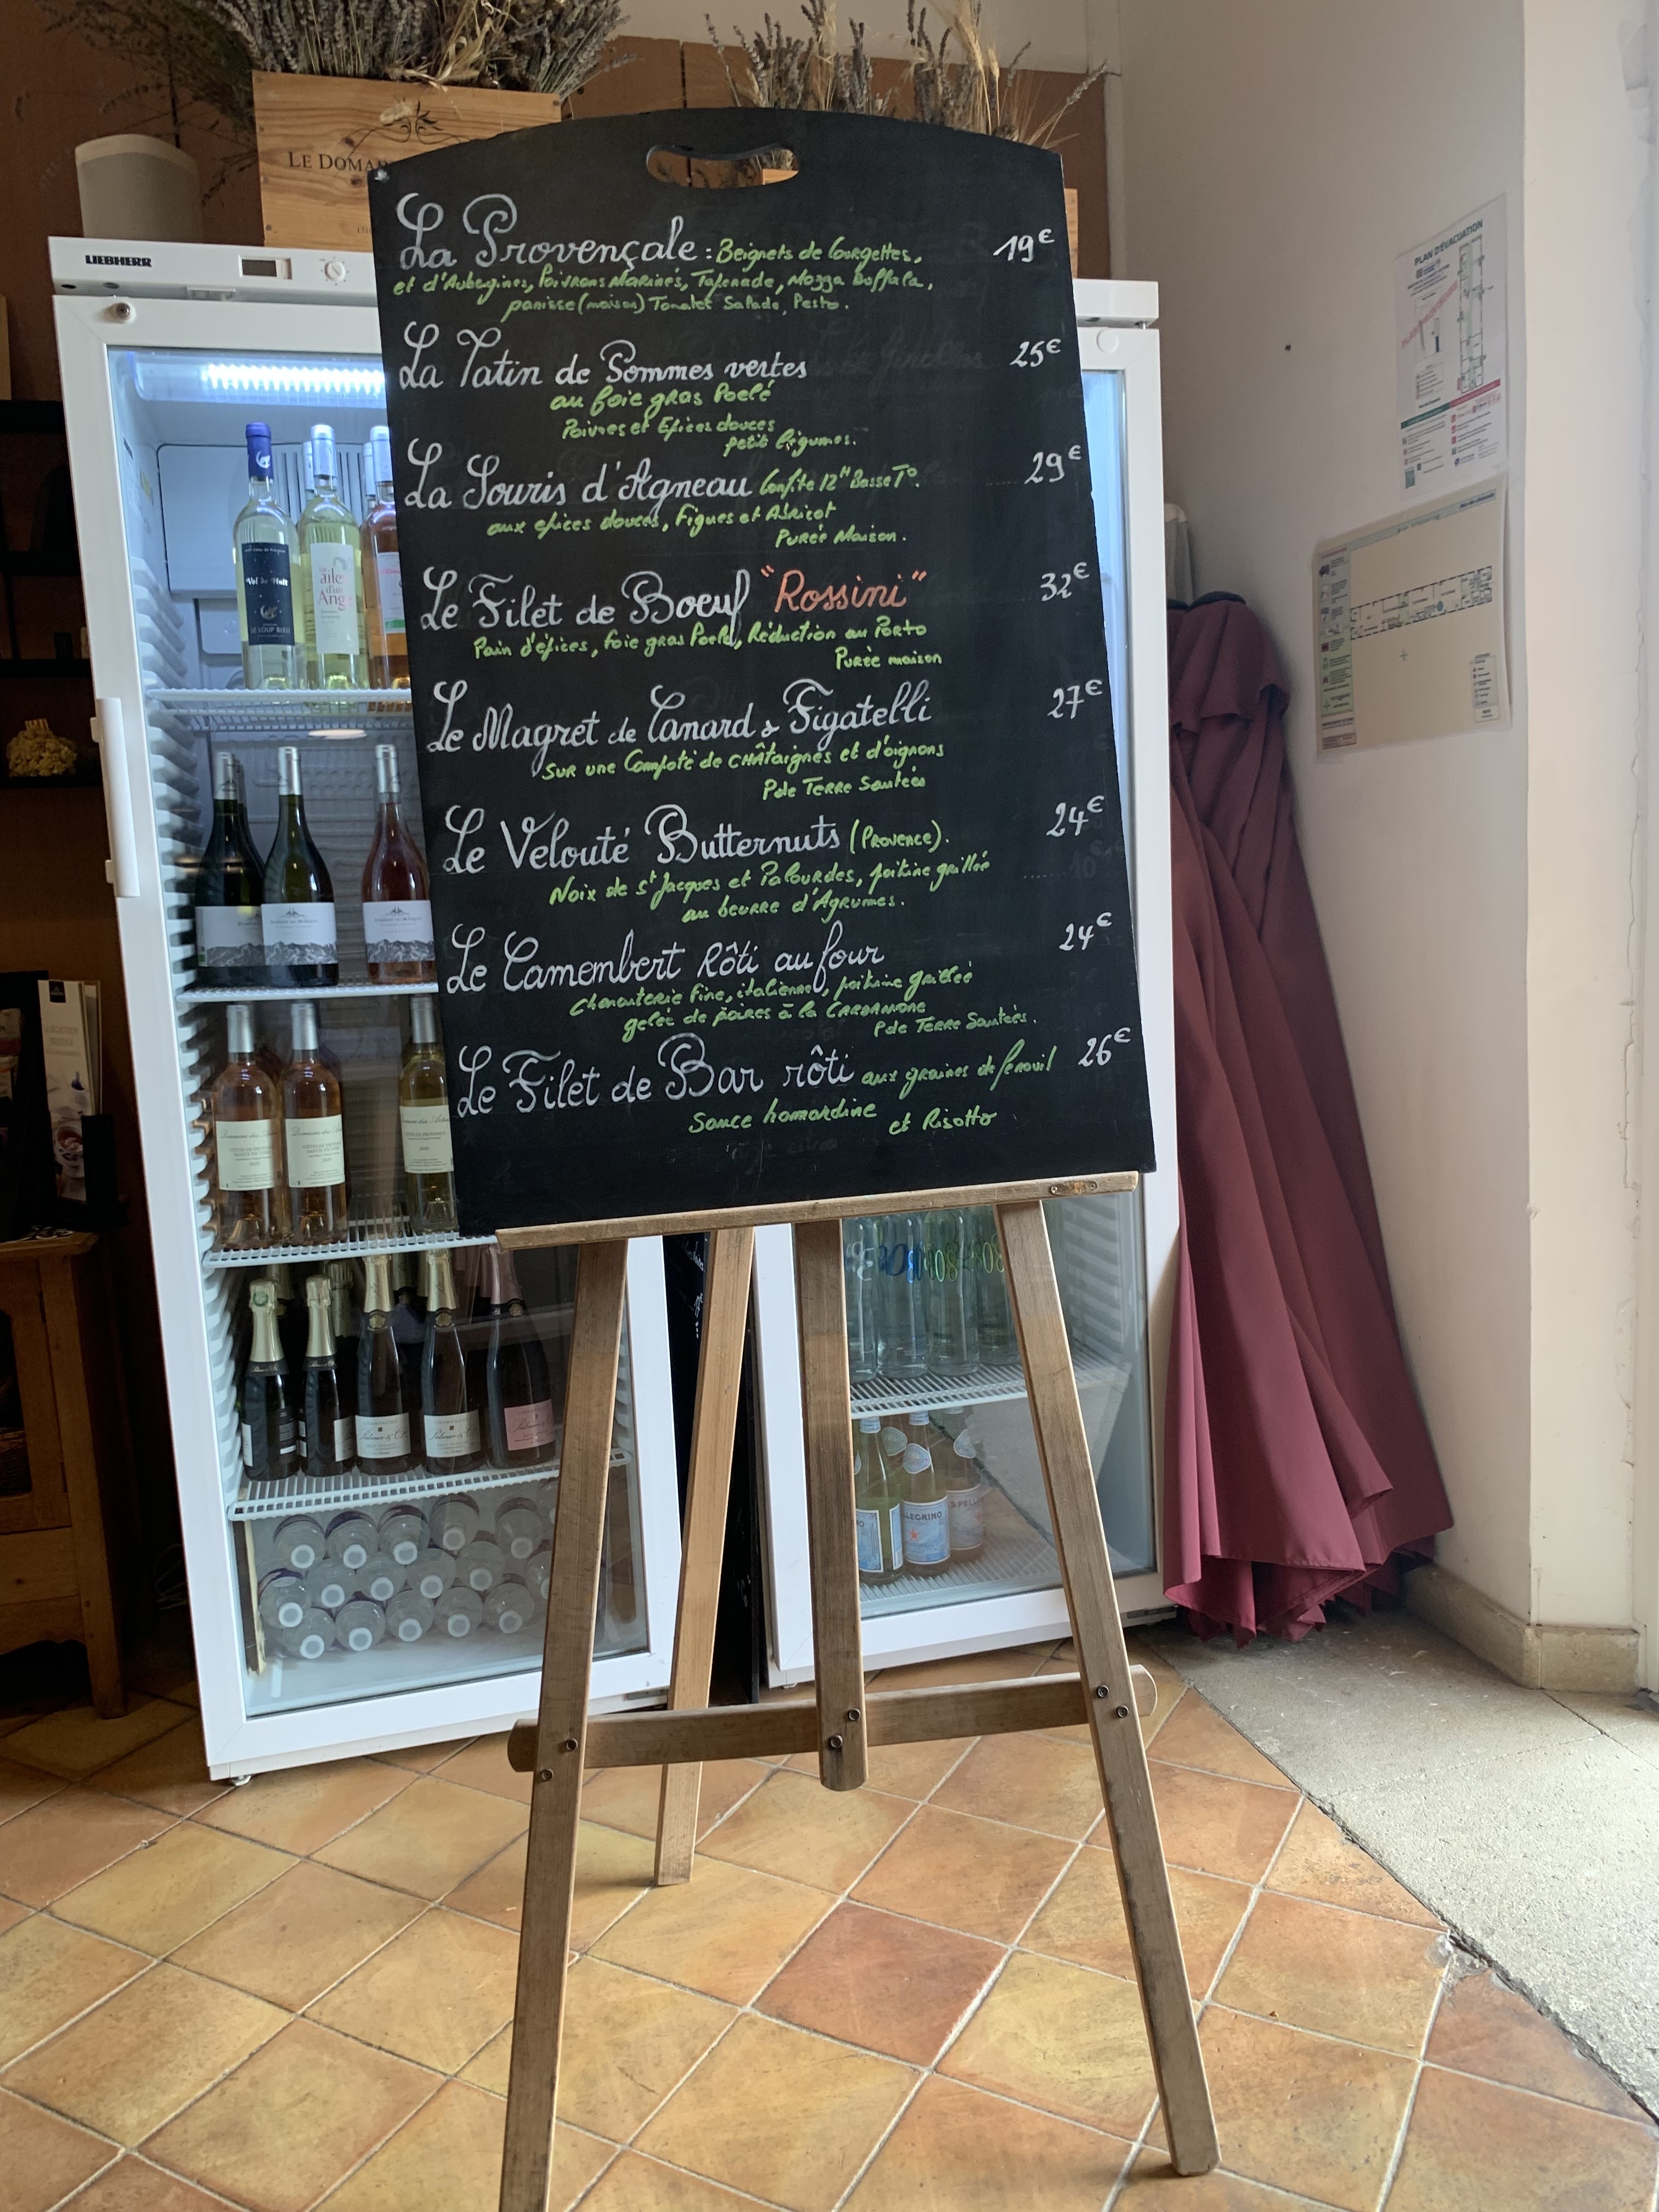 LE DOMA
LIEBHERR
La Provençale : Beignets de Courgettes, 19€
et d'Aubergines, Poivrons Marinés, Tapenade, Mozza Buffala,
panisse (maison) Tomates Salade, Pesto.
La Tatin de Pommes vertes 25€
au foie gras Poelé
Poivres et Epices douces
petit légumes.
La Souris d'Agneau Confite 12H Basse T°. 29€
aux épices douces, Figues et Abricot
Purée Maison.
Le Filet de Boeuf "Rossini" 32€
Pain d'épices, foie gras Poelé, Réduction au Porto
Purée maison
Le Magret de Canard & Figatelli 27€
Sur une Compoté de CHÂTaignes et d'oignons
P de Terre Sautées
Le Velouté Butternuts (Provence). 24€
Noix de St Jacques et Palourdes, poitrine grillée
au beurre d'Agrumes.
Le Camembert Rôti au four 24€
Charcuterie Fine, italienne, poitrine grillée
gelée de poires à la CARDAMONE
P de Terre Sautées.
Le Filet de Bar rôti aux graines de fenouil 26€
Sauce homardine et Risotto
PLAN D'ÉVACUATION
Vol de Nuit
LE LOUP BLEU
aile
d'un
Ang
LLEGRINO
S.PELL